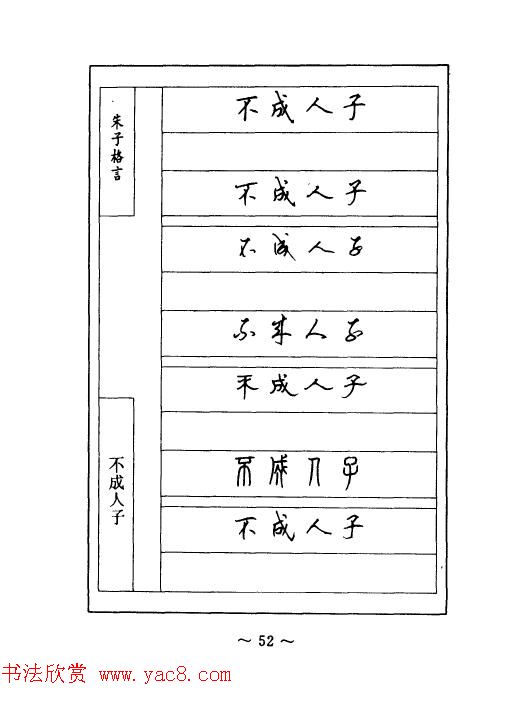 朱子格言
不成人子
不成人子
不成人子
不成人子
不成人子
不成人子
不成人子
不成人子
～ 52 ～
书法欣赏 www.yac8.com